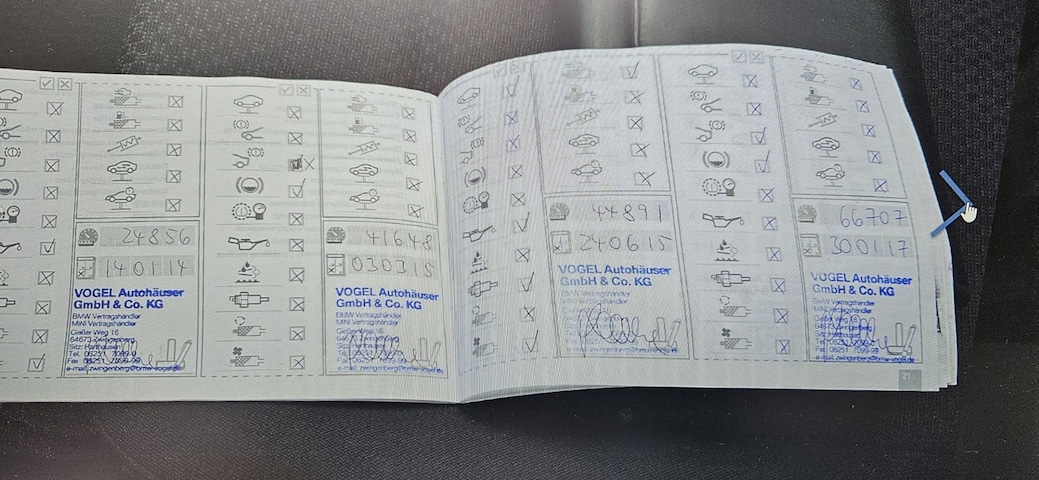 24856
140114
VOGEL Autohäuser
GmbH & Co. KG
BMW Vertragshändler
MINI Vertragshändler
Gießer Weg 16
64673 Zwingenberg
Tel. 06251 7099-0
Fax 06251 7099-99
e-mail: zwingenberg@bmw-vogel.de
41648
030315
VOGEL Autohäuser
GmbH & Co. KG
BMW Vertragshändler
MINI Vertragshändler
Gießer Weg 16
64673 Zwingenberg
e-mail: zwingenberg@bmw-vogel.de
44891
240615
VOGEL Autohäuser
GmbH & Co. KG
BMW Vertragshändler
MINI Vertragshändler
66707
300117
VOGEL Autohäuser
GmbH & Co. KG
BMW Vertragshändler
MINI Vertragshändler
Gießer Weg 16
64673 Zwingenberg
e-mail: zwingenberg@bmw-vogel.de
21